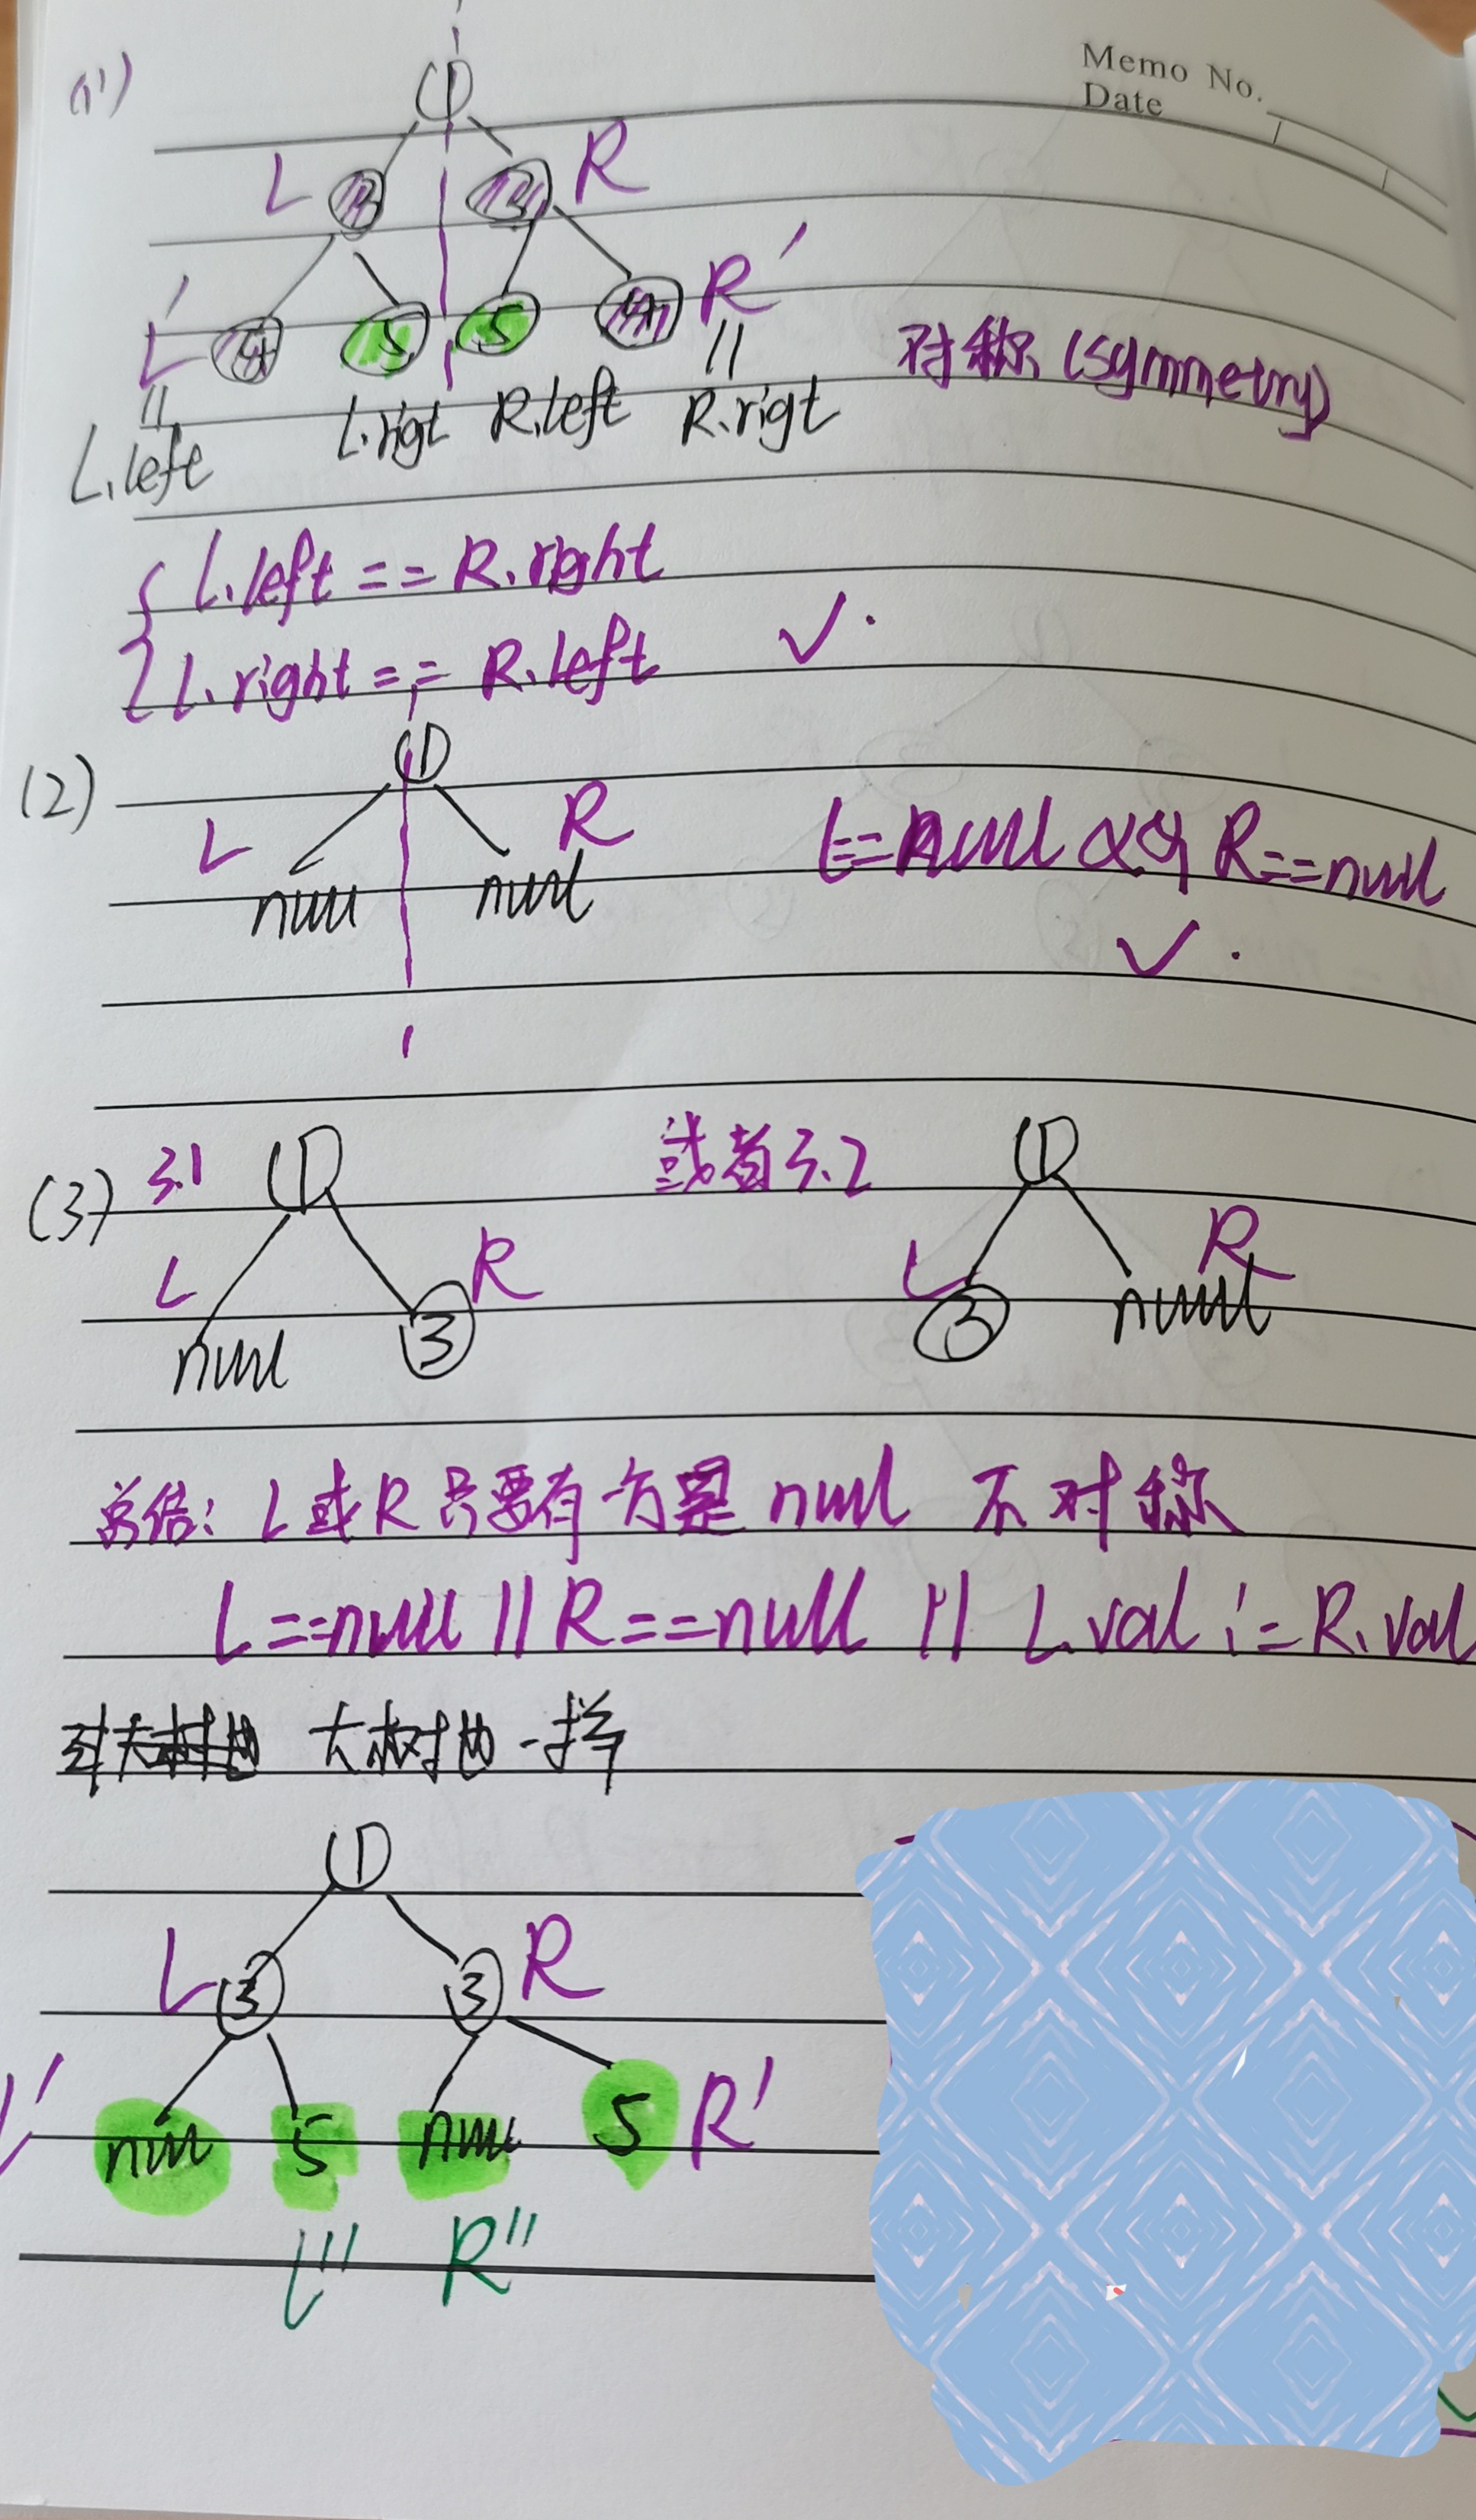 Memo No.
Date
(1)
1
L 3 3 R
L' 4 5 5 4 R'
对称 (symmetry)
L.left L.rigt R.left R.rigt
L.left == R.right
L.right == R.left ✓.
(2)
1
L R
null null
L==null && R==null
✓.
(3) 3.1 1 或者3.2 1
L R L R
null 3 3 null
总结: L或R只要有一方是 null 不对称
L==null || R==null || L.val != R.val
大树也一样
1
L 3 3 R
L' null 5 null 5 R'
L'' R''